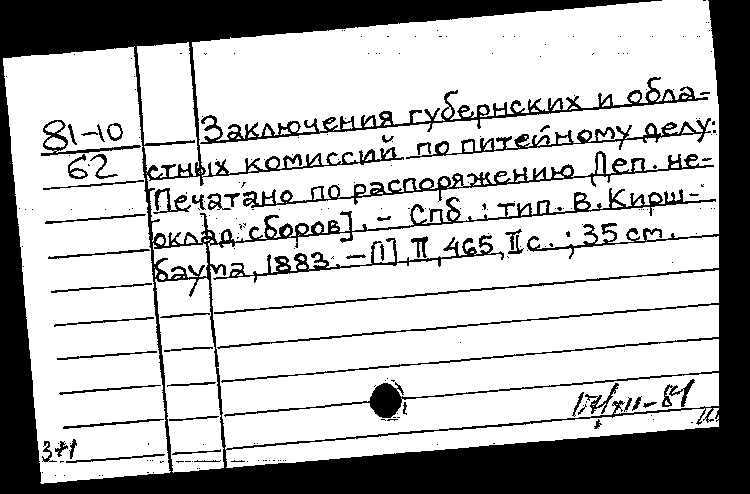 81-10
62
Заключения губернских и обла=
стных комиссий по питейному делу:
[Печатано по распоряжению Деп. не=
оклад. сборов]. – Спб.: тип. В. Кирш-
баума, 1883. – [1], II, 465, II с.; 35 см.
17/XII-81